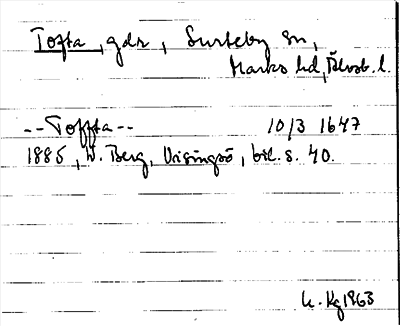 Tofta, gdr, Surteby sn,
Marks hd, Älvsb. l.
--Toffta-- 10/3 1647
1885, W. Berg, Visingsö, bil. s. 40.
K. Kg 1963